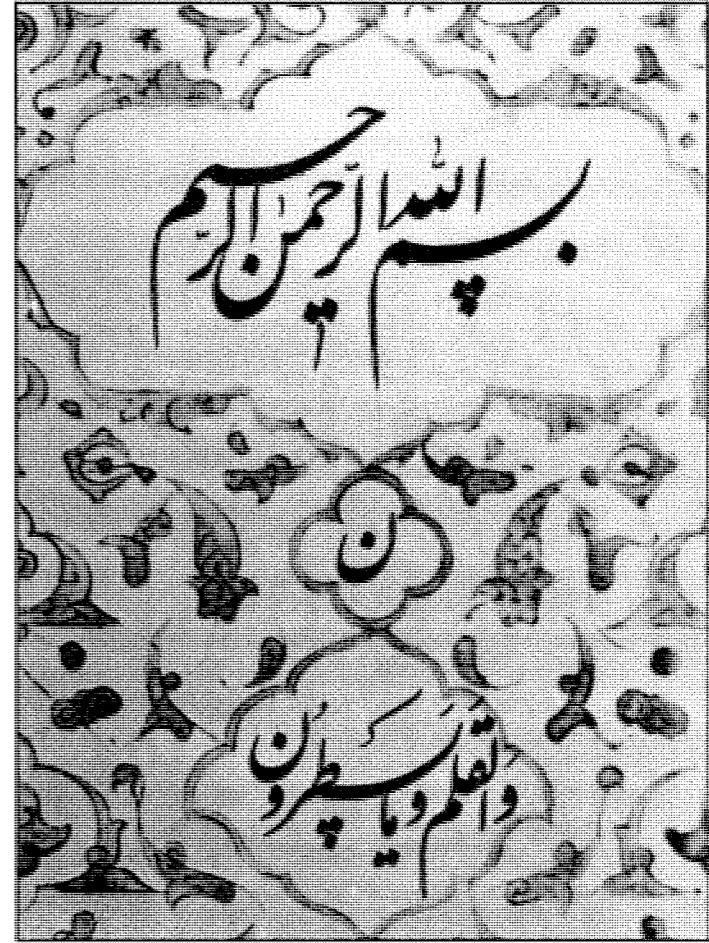 بسم الله الرحمن الرحیم
ن
والقلم وما یسطرون